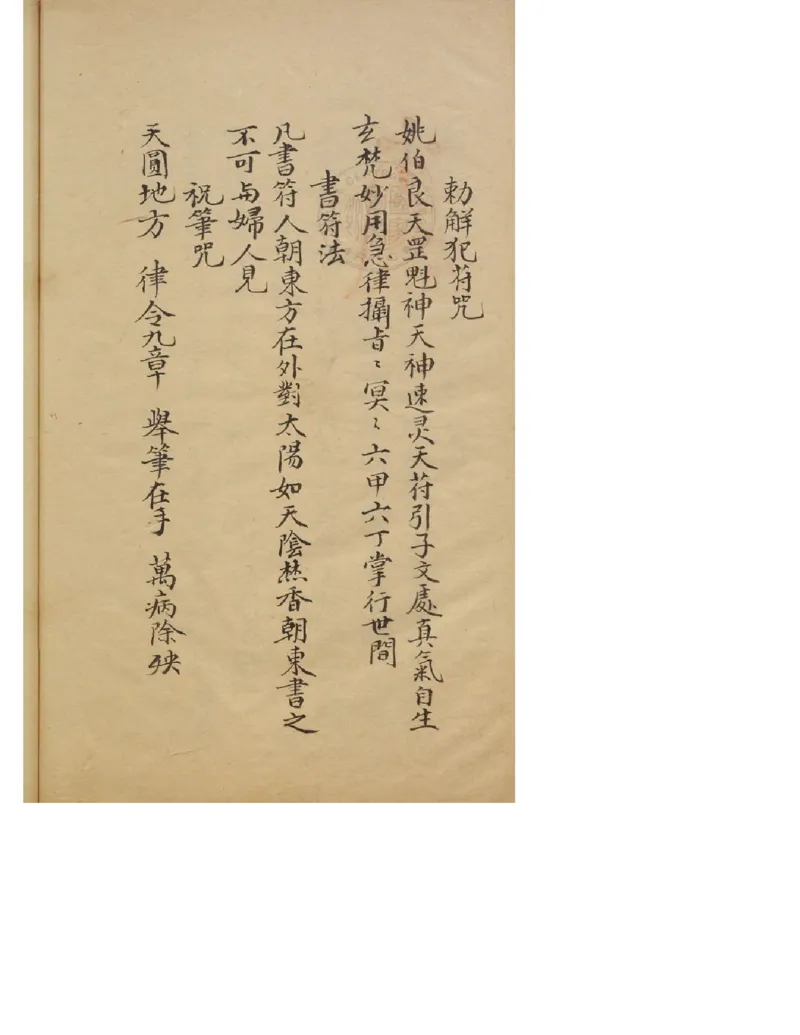 勅解犯苻咒
姚伯良天罡魁神天神速灵天苻引子文處真氣自生
玄梵妙用急律攝旹〻冥〻六甲六丁掌行世間
書符法
凡書符人朝東方在外對太陽如天陰焚香朝東書之
不可与婦人見
祝筆咒
天圓地方 律令九章 舉筆在手 萬病除殃